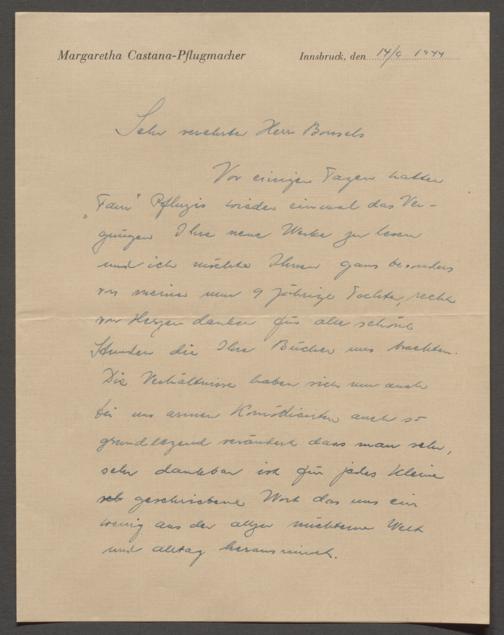 Margaretha Castana-Pflugmacher
Innsbruck, den 14/9 1944
Sehr verehrter Herr Bonsels
Vor einigen Tagen hatten
"Fam" wieder einmal das Ver-
gnügen Ihre neue Werke zu lesen
und ich möchte Ihnen ganz besonders
von meine nun 9 jährige Tochter, recht
von Herzen danken für alle schöne
Stunden die Ihre Bücher uns brachten.
Die Verhältnisse haben sich nun auch
bei uns armen Komödianten auch so
grundlegend verändert dass man sehr,
sehr dankbar ist für jedes kleine
geschriebene Wort das uns ein
wenig aus der allzu nüchterne Welt
und alltag herausnimmt.